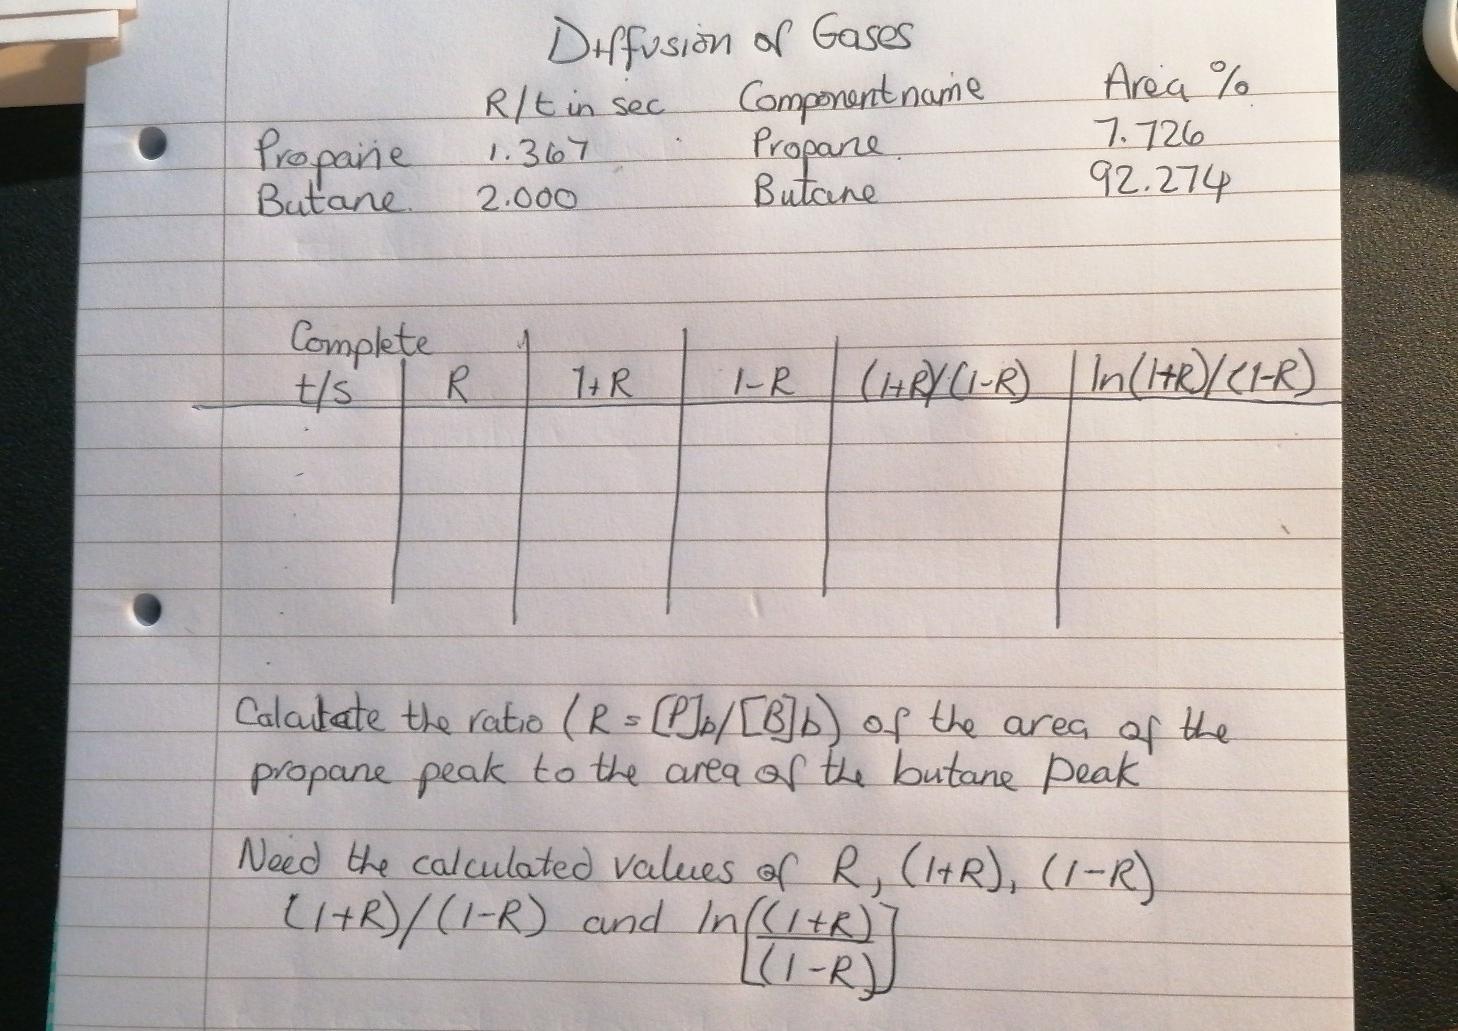 Diffusion of Gases
R/t in sec Component name Area %
Propane 1.367 Propane 7.726
Butane 2.000 Butane 92.274
Complete
t/s R 1+R 1-R (1+R)/(1-R) ln(1+R)/(1-R)
Calculate the ratio (R = [P]b/[B]b) of the area of the
propane peak to the area of the butane peak
Need the calculated values of R, (1+R), (1-R)
(1+R)/(1-R) and ln[(1+R)
(1-R)]